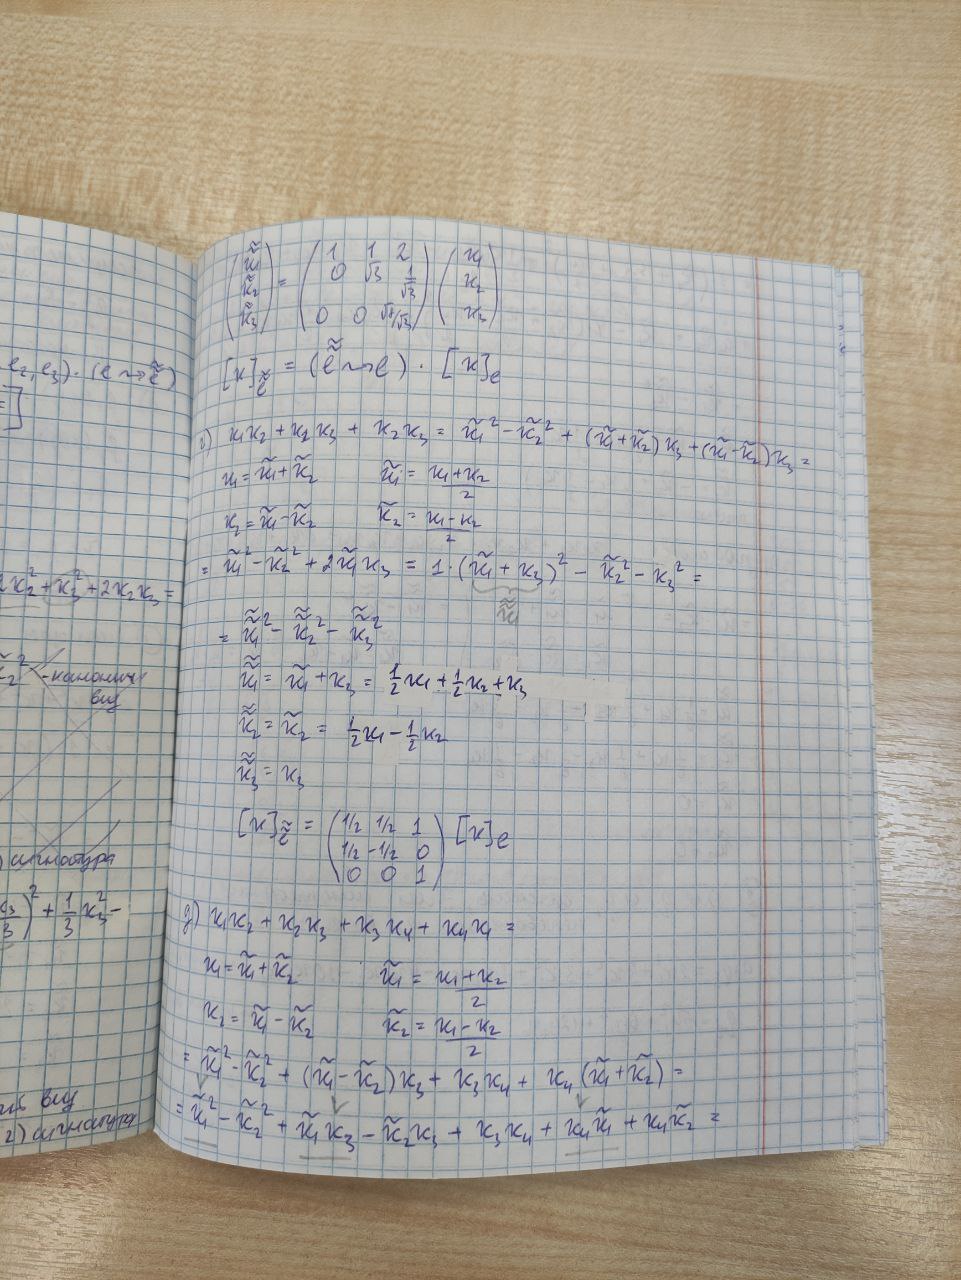 e₂, e₃) · (e ⇝ ẽ̃)
2x₂² + x₃² + 2x₂x₃ =
- канонич.
вид
) сигнатура
)² + 1/3 x₃² -
вид
2) сигнатура
(x̃̃₁ x̃̃₂ x̃̃₃) = (1 1 2; 0 √3 1/√3; 0 0 √8/√3) (x₁ x₂ x₃)
[x]ẽ̃ = (ẽ̃ ⇝ e) · [x]e
г) x₁x₂ + x₂x₃ + x₂x₃ = x̃₁² - x̃₂² + (x̃₁ + x̃₂)x₃ + (x̃₁ - x̃₂)x₃ =
x₁ = x̃₁ + x̃₂ x̃₁ = (x₁ + x₂)/2
x₂ = x̃₁ - x̃₂ x̃₂ = (x₁ - x₂)/2
= x̃₁² - x̃₂² + 2x̃₁x₃ = 1 · (x̃₁ + x₃)² - x̃₂² - x₃² =
x̃̃₁
= x̃̃₁² - x̃̃₂² - x̃̃₃²
x̃̃₁ = x̃₁ + x₃ = 1/2 x₁ + 1/2 x₂ + x₃
x̃̃₂ = x̃₂ = 1/2 x₁ - 1/2 x₂
x̃̃₃ = x₃
[x]ẽ̃ = (1/2 1/2 1; 1/2 -1/2 0; 0 0 1) [x]e
д) x₁x₂ + x₂x₃ + x₃x₄ + x₄x₁ =
x₁ = x̃₁ + x̃₂ x̃₁ = (x₁ + x₂)/2
x₂ = x̃₁ - x̃₂ x̃₂ = (x₁ - x₂)/2
= x̃₁² - x̃₂² + (x̃₁ - x̃₂)x₃ + x₃x₄ + x₄(x̃₁ + x̃₂) =
= x̃₁² - x̃₂² + x̃₁x₃ - x̃₂x₃ + x₃x₄ + x₄x̃₁ + x₄x̃₂ =